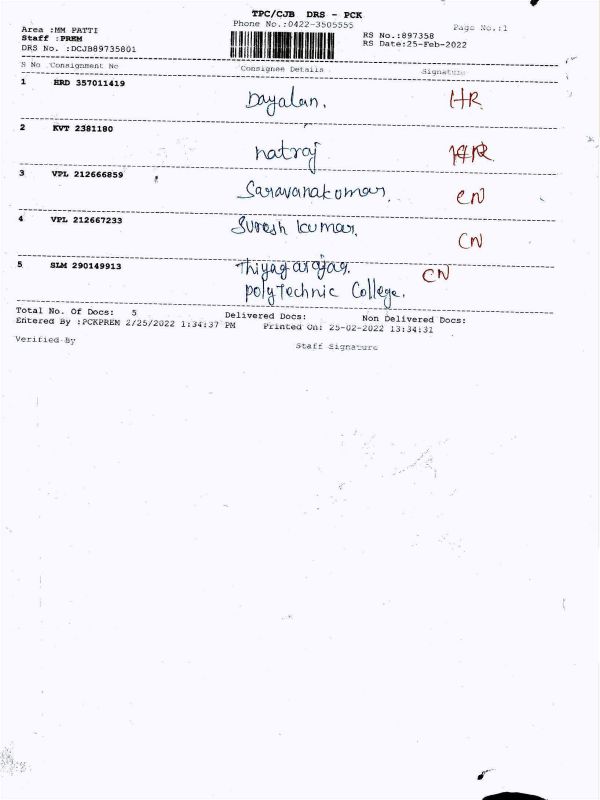 TPC/CJB DRS - PCK
Phone No.:0422-3505555
Page No.:1
Area :MM PATTI
Staff :PREM
DRS No. :DCJB89735801
RS No.:897358
RS Date:25-Feb-2022
S No Consignment No Consignee Details Signature
1 ERD 357011419 Dayalan. HR
2 KVT 2381180 natraj HR
3 VPL 212666859 Saravanakumar. CN
4 VPL 212667233 Suresh kumar. CN
5 SLM 290149913 Thiyagarajar. CN
polyTechnic College.
Total No. Of Docs: 5 Delivered Docs: Non Delivered Docs:
Entered By :PCKPREM 2/25/2022 1:34:37 PM Printed On: 25-02-2022 13:34:31
Verified By Staff Signature